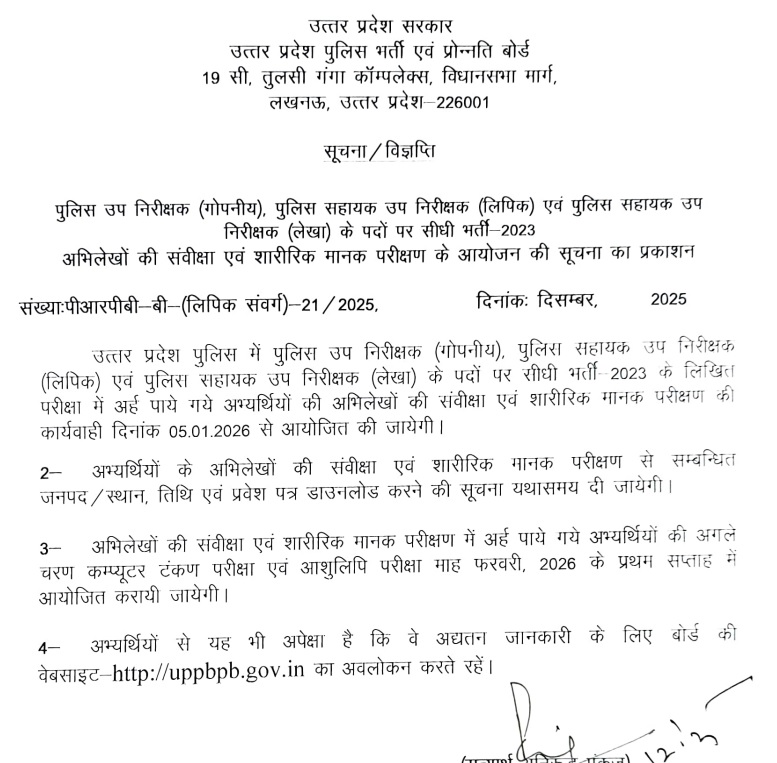 उत्तर प्रदेश सरकार
उत्तर प्रदेश पुलिस भर्ती एवं प्रोन्नति बोर्ड
19 सी, तुलसी गंगा कॉम्पलेक्स, विधानसभा मार्ग,
लखनऊ, उत्तर प्रदेश–226001
सूचना/विज्ञप्ति
पुलिस उप निरीक्षक (गोपनीय), पुलिस सहायक उप निरीक्षक (लिपिक) एवं पुलिस सहायक उप
निरीक्षक (लेखा) के पदों पर सीधी भर्ती–2023
अभिलेखों की संवीक्षा एवं शारीरिक मानक परीक्षण के आयोजन की सूचना का प्रकाशन
संख्याःपीआरपीबी–बी–(लिपिक संवर्ग)–21/2025, दिनांकः दिसम्बर, 2025
उत्तर प्रदेश पुलिस में पुलिस उप निरीक्षक (गोपनीय), पुलिस सहायक उप निरीक्षक
(लिपिक) एवं पुलिस सहायक उप निरीक्षक (लेखा) के पदों पर सीधी भर्ती–2023 के लिखित
परीक्षा में अर्ह पाये गये अभ्यर्थियों की अभिलेखों की संवीक्षा एवं शारीरिक मानक परीक्षण की
कार्यवाही दिनांक 05.01.2026 से आयोजित की जायेगी।
2– अभ्यर्थियों के अभिलेखों की संवीक्षा एवं शारीरिक मानक परीक्षण से सम्बन्धित
जनपद/स्थान, तिथि एवं प्रवेश पत्र डाउनलोड करने की सूचना यथासमय दी जायेगी।
3– अभिलेखों की संवीक्षा एवं शारीरिक मानक परीक्षण में अर्ह पाये गये अभ्यर्थियों की अगले
चरण कम्प्यूटर टंकण परीक्षा एवं आशुलिपि परीक्षा माह फरवरी, 2026 के प्रथम सप्ताह में
आयोजित करायी जायेगी।
4– अभ्यर्थियों से यह भी अपेक्षा है कि वे अद्यतन जानकारी के लिए बोर्ड की
वेबसाइट–http://uppbpb.gov.in का अवलोकन करते रहें।